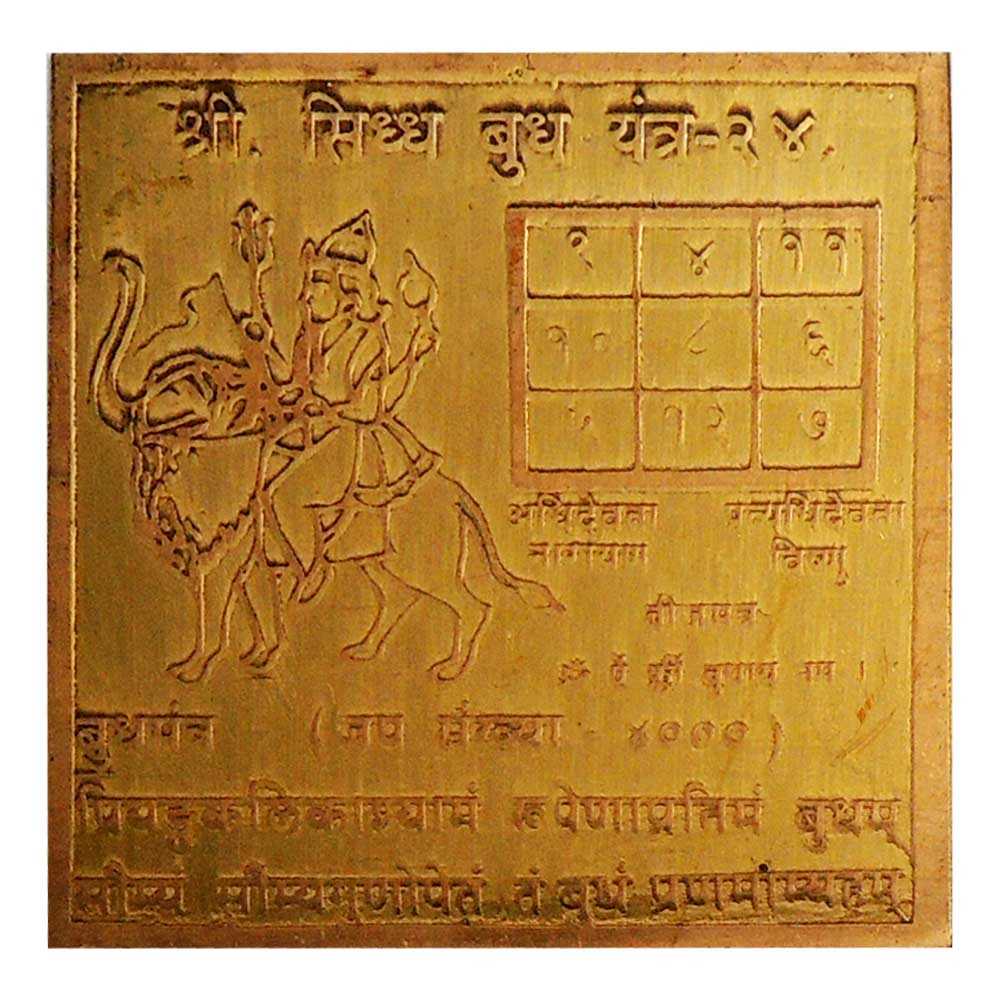 श्री. सिध्ध बुध यंत्र-२४.
९ ४ ११
१० ८ ६
५ १२ ७
अधिदैवता प्रत्यधिदैवता
नारायण विष्णु
ॐ ऐं
बुधमंत्र - ( जप संख्या - ४००० )
प्रियङ्गुकलिकाश्यामं रूपेणाप्रतिमं बुधम्
सौम्यं सौम्यगुणोपेतं तं बुधं प्रणमाम्यहम्